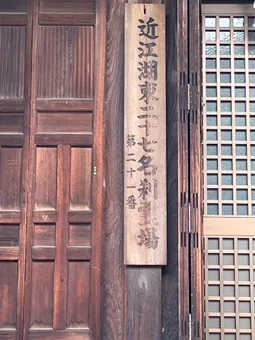 近江湖東二十七名刹霊場
第二十一番